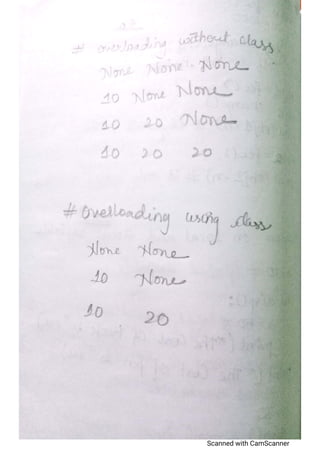 # overloading without class
None None None
10 None None
10 20 None
10 20 20
# Overloading using class
None None
10 None
10 20
Scanned with CamScanner